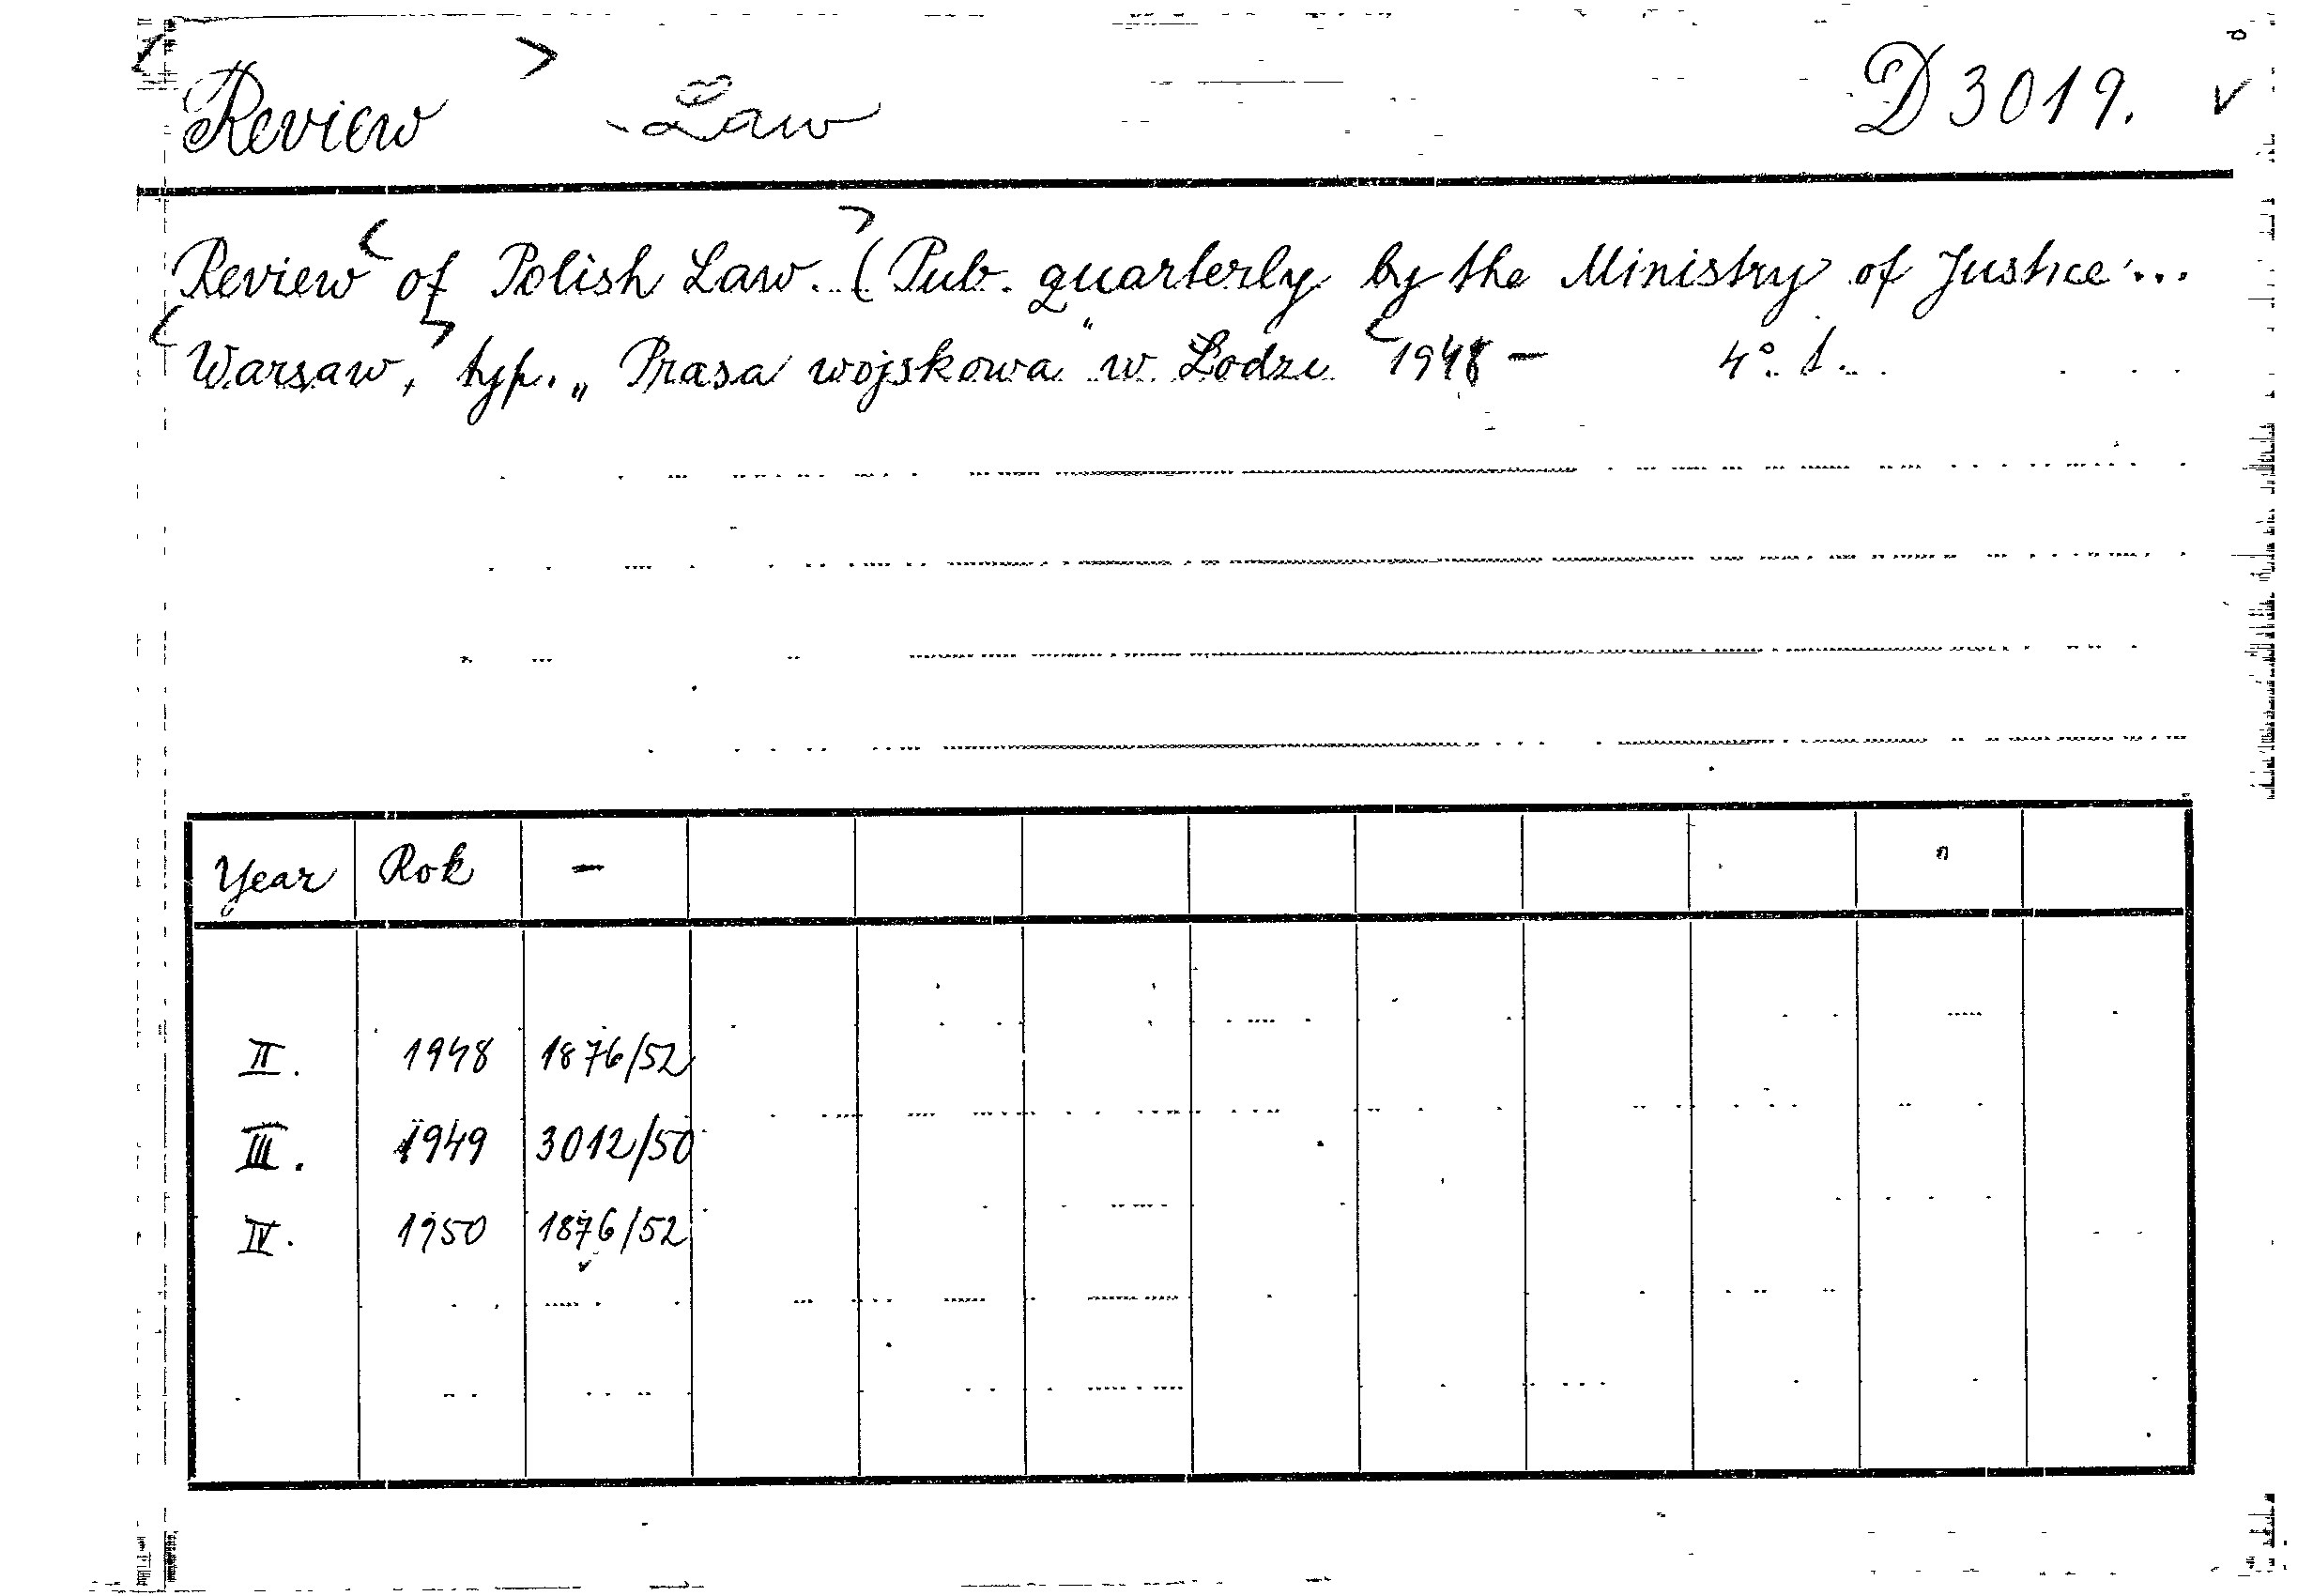 Review Law D 3019.
Review of Polish Law. (Pub. quarterly by the Ministry of Justice...
Warsaw, typ. „Prasa wojskowa" w Lodzi 1948 — 4°.
Year Rok —
II. 1948 1876/52
III. 1949 3012/50
IV. 1950 1876/52